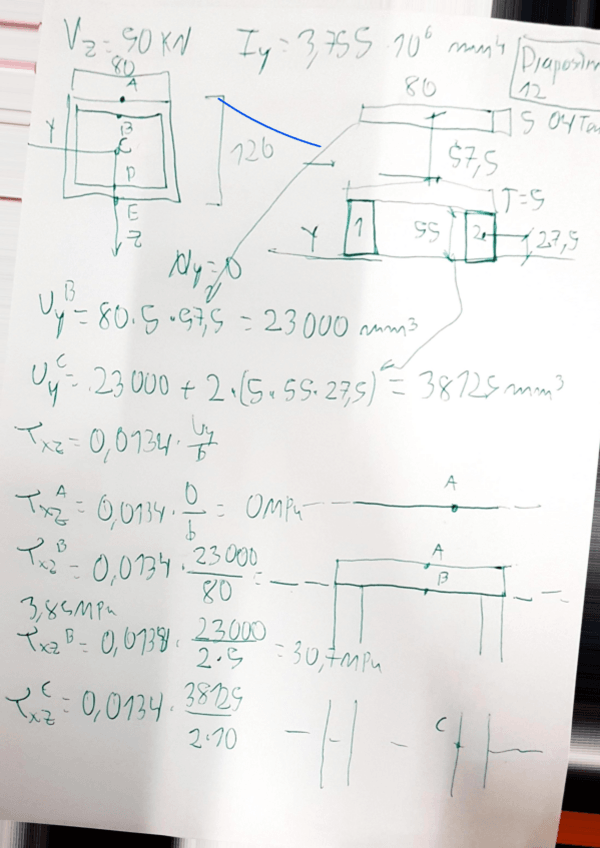 Vz = 50 KN   Iy = 3,755 · 10⁶ mm⁴
Diapositiva
12
80
A
B
C
D
E
Y
z
120
80
5
57,5
T=5
Y
1
55
2
27,5
Uy = 0
Uy^B = 80·5·57,5 = 23000 mm³
Uy^C = 23000 + 2·(5·55·27,5) = 38125 mm³
τxz = 0,0134 · Uy/b
τxz^A = 0,0134 · 0/b = 0MPa
A
τxz^B = 0,0134 · 23000/80 =
3,85MPa
A
B
τxz^B = 0,0134 · 23000/2·5 = 30,7MPa
τxz^C = 0,0134 · 38125/2·10
C